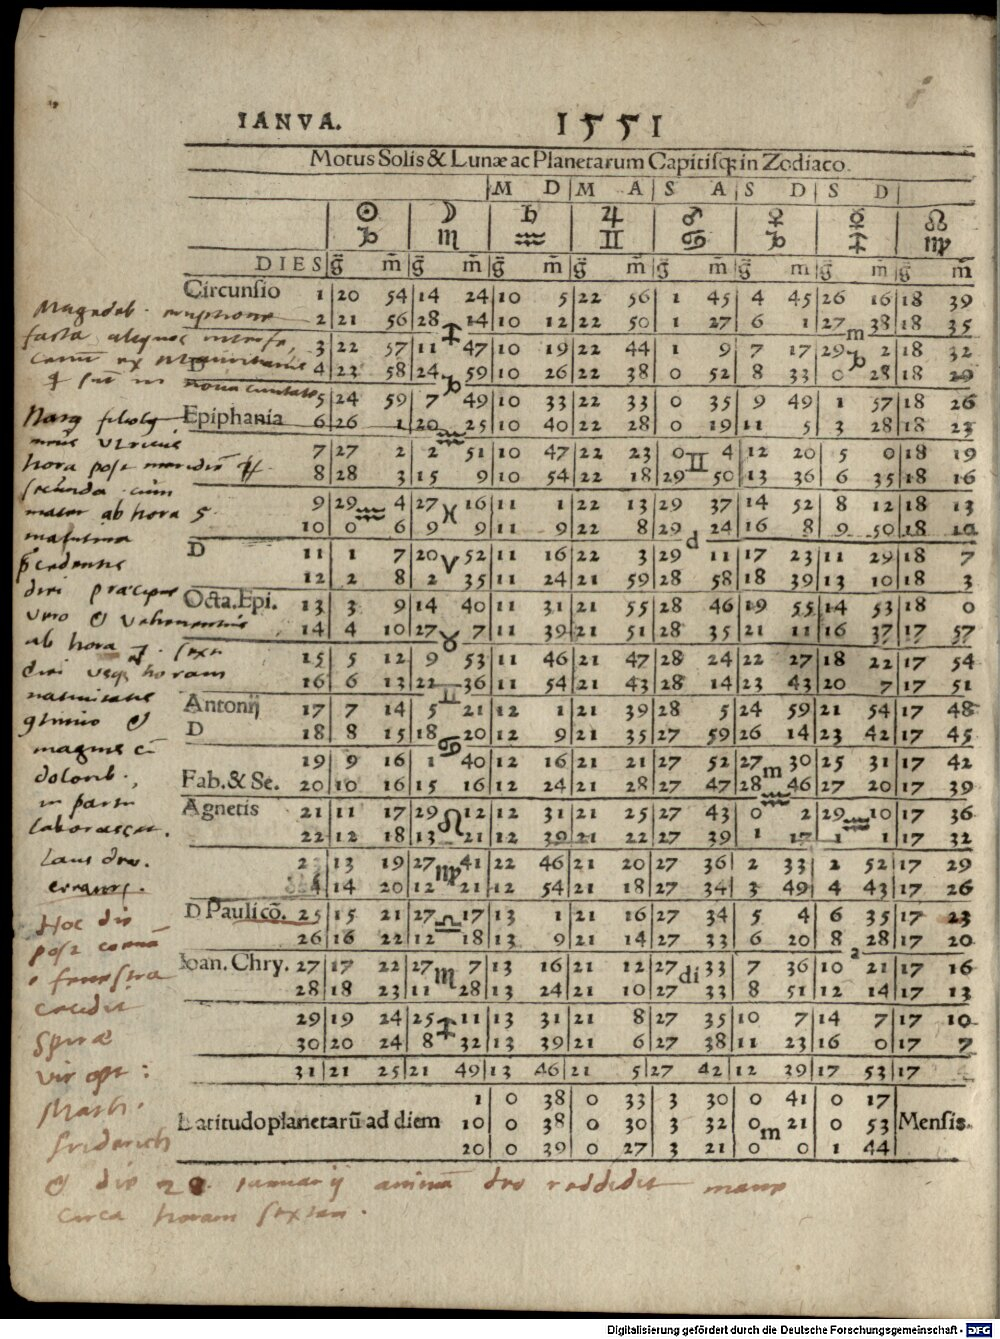 IANVA. 1551
Motus Solis & Lunæ ac Planetarum Capitisq; in Zodiaco.
M D M A S A S D S D
☉ ☽ ♄ ♃ ♂ ♀ ☿ ☊
♑ ♏ ♒ ♊ ♋ ♑ ♐ ♍
DIES g̃ m̃ g̃ m̃ g̃ m̃ g̃ m̃ g̃ m̃ g̃ m g̃ m̃ g̃ m̃
Circunsio 1 20 54 14 24 10 5 22 56 1 45 4 45 26 16 18 39
2 21 56 28 ♐ 14 10 12 22 50 1 27 6 1 27 m 38 18 35
3 22 57 11 47 10 19 22 44 1 9 7 17 29 ♑ 2 18 32
D 4 23 58 24 ♑ 59 10 26 22 38 0 52 8 33 0 28 18 29
5 24 59 7 49 10 33 22 33 0 35 9 49 1 57 18 26
Epiphania 6 26 1 20 ♒ 25 10 40 22 28 0 19 11 5 3 28 18 23
7 27 2 2 51 10 47 22 23 0 ♊ 4 12 20 5 0 18 19
8 28 3 15 9 10 54 22 18 29 50 13 36 6 35 18 16
9 29 ♒ 4 27 ♓ 16 11 1 22 13 29 37 14 52 8 12 18 13
10 0 6 9 9 11 9 22 8 29 d 24 16 8 9 50 18 10
D 11 1 7 20 ♈ 52 11 16 22 3 29 11 17 23 11 29 18 7
12 2 8 2 35 11 24 21 59 28 58 18 39 13 10 18 3
Octa. Epi. 13 3 9 14 40 11 31 21 55 28 46 19 55 14 53 18 0
14 4 10 27 ♉ 7 11 39 21 51 28 35 21 11 16 37 17 57
15 5 12 9 53 11 46 21 47 28 24 22 27 18 22 17 54
16 6 13 22 ♊ 36 11 54 21 43 28 14 23 43 20 7 17 51
Antonij 17 7 14 5 21 12 1 21 39 28 5 24 59 21 54 17 48
D 18 8 15 18 ♋ 20 12 9 21 35 27 59 26 14 23 42 17 45
19 9 16 1 40 12 16 21 21 27 52 27 m 30 25 31 17 42
Fab. & Se. 20 10 16 15 16 12 24 21 28 27 47 28 ♒ 46 27 20 17 39
Agnetis 21 11 17 29 ♌ 12 12 31 21 25 27 43 0 2 29 ♒ 10 17 36
22 12 18 13 21 12 39 21 22 27 39 1 17 1 1 17 32
23 13 19 27 ♍ 41 22 46 21 20 27 36 2 33 2 52 17 29
24 14 20 12 21 12 54 21 18 27 34 3 49 4 43 17 26
D Pauli cō. 25 15 21 27 ♎ 17 13 1 21 16 27 34 5 4 6 35 17 23
26 16 22 12 18 13 9 21 14 27 33 6 20 8 28 17 20
Ioan. Chry. 27 17 22 27 ♏ 7 13 16 21 12 27 di 33 7 36 10 21 17 16
28 18 23 11 28 13 24 21 10 27 33 8 51 12 14 17 13
29 19 24 25 ♐ 11 13 31 21 8 27 35 10 7 14 7 17 10
30 20 24 8 32 13 39 21 6 27 38 11 23 16 0 17 7
31 21 25 21 49 13 46 21 5 27 42 12 39 17 53 17
1 0 38 0 33 3 30 0 41 0 17
Latitudo planetarū ad diem 10 0 38 0 30 3 32 0 m 21 0 53 Mensis.
20 0 39 0 27 3 21 0 0 1 44
hora post
mater ab hora 5
ab hora
horam
magnis
dolorib.
in partu
laborasset.
Laus deo.
Hoc die
post
fenestra
cecidit
vir opt:
Friderich
die 28. Ianuarij animā deo reddidit mane
circa horam sextam.
Digitalisierung gefördert durch die Deutsche Forschungsgemeinschaft - DFG